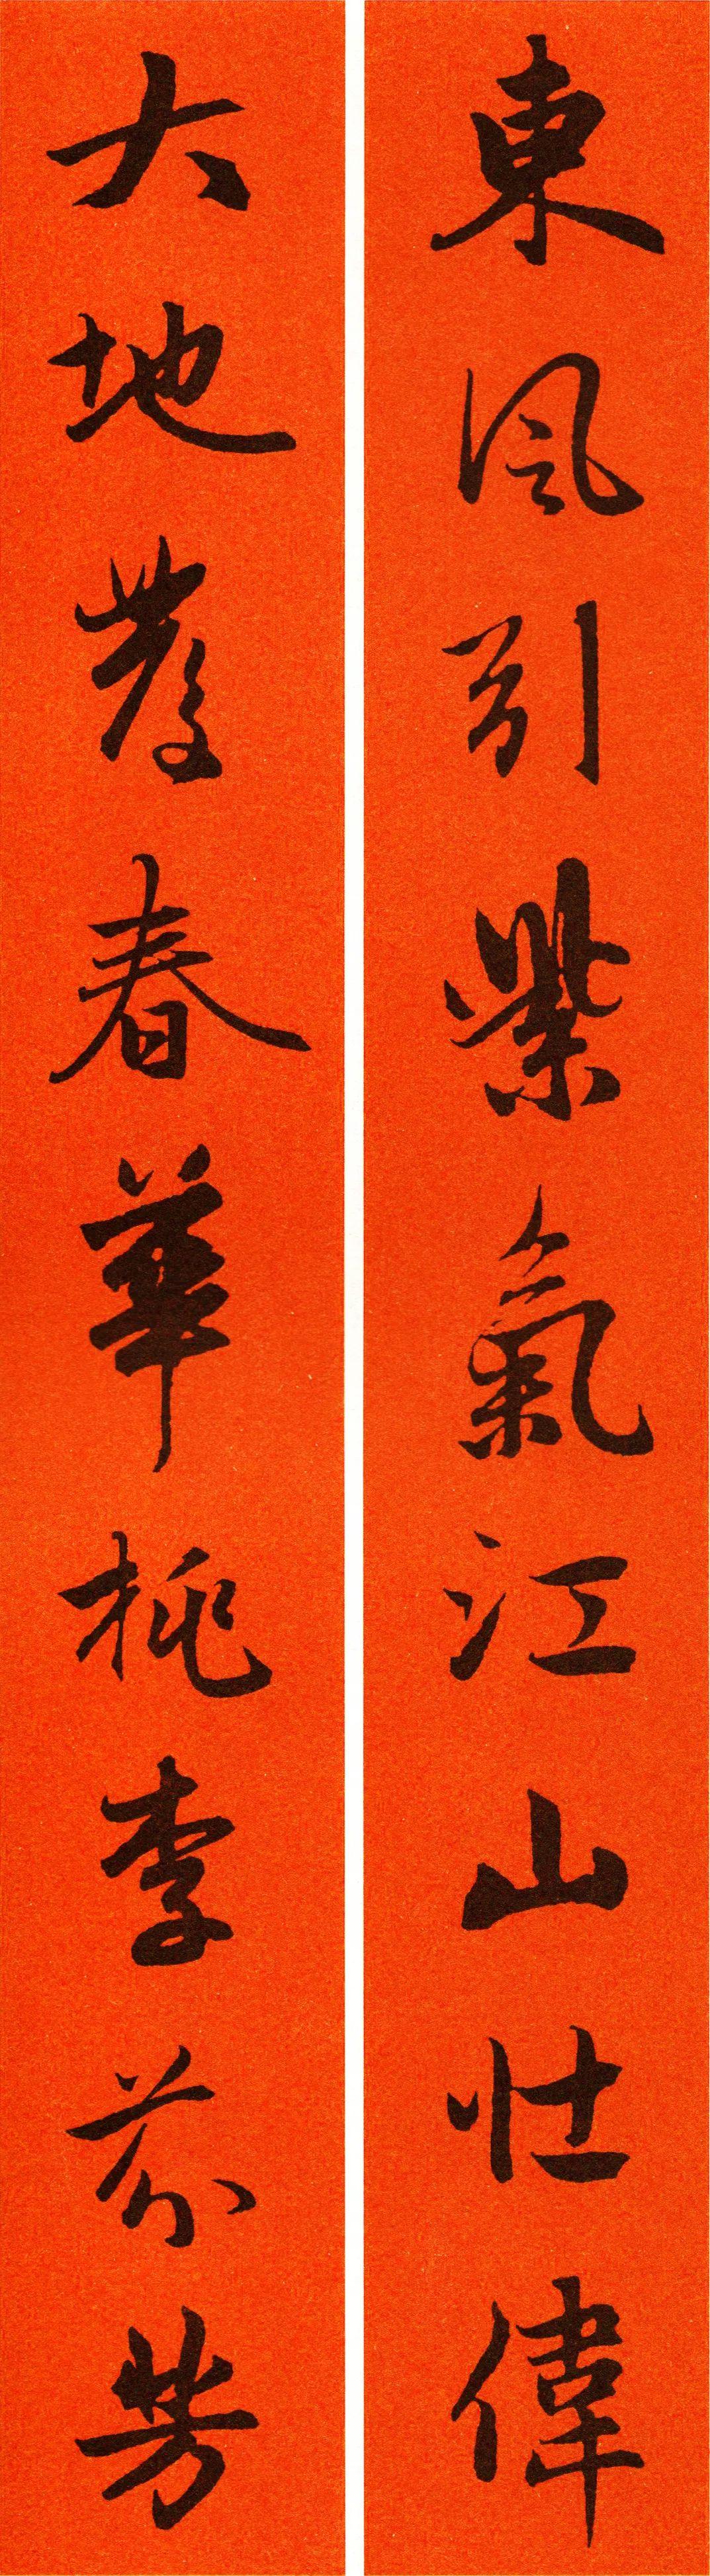 東風引紫氣江山壯偉
大地發春華桃李芬芳